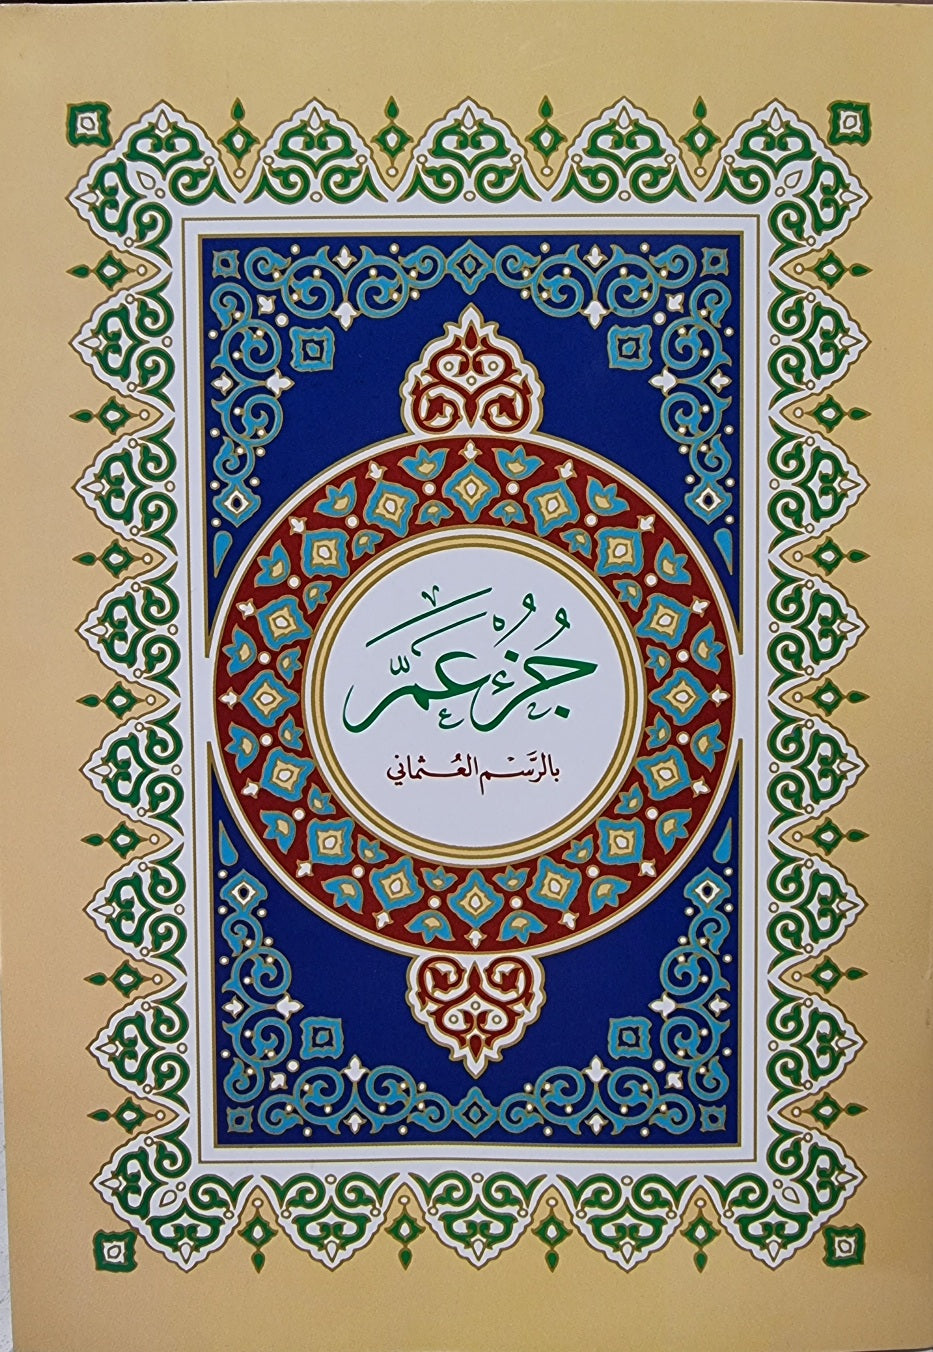 جُزْءُ عَمَّ
بالرَّسْمِ العُثماني